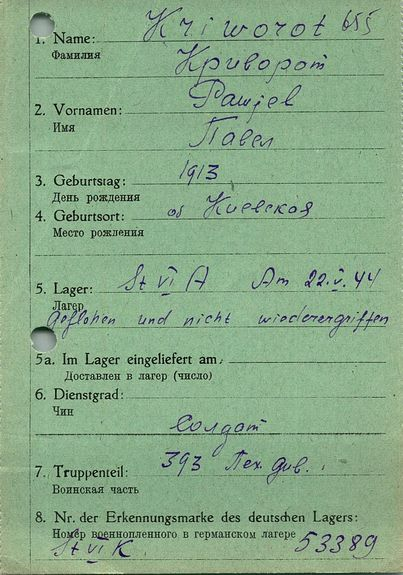 1. Name: Kriworot 655
Фамилия Криворот
2. Vornamen:
Имя Павел
3. Geburtstag: 1913
День рождения
4. Geburtsort: об Киевская
Место рождения
5. Lager: St VI A Am 22.V.44
Лагер
geflohen und nicht wiederergriffen
5a. Im Lager eingeliefert am
Доставлен в лагер (число)
6. Dienstgrad:
Чин
Солдат
7. Truppenteil: 393 Пех. див.
Воинская часть
8. Nr. der Erkennungsmarke des deutschen Lagers:
Номер военнопленного в германском лагере
St VI K 53389